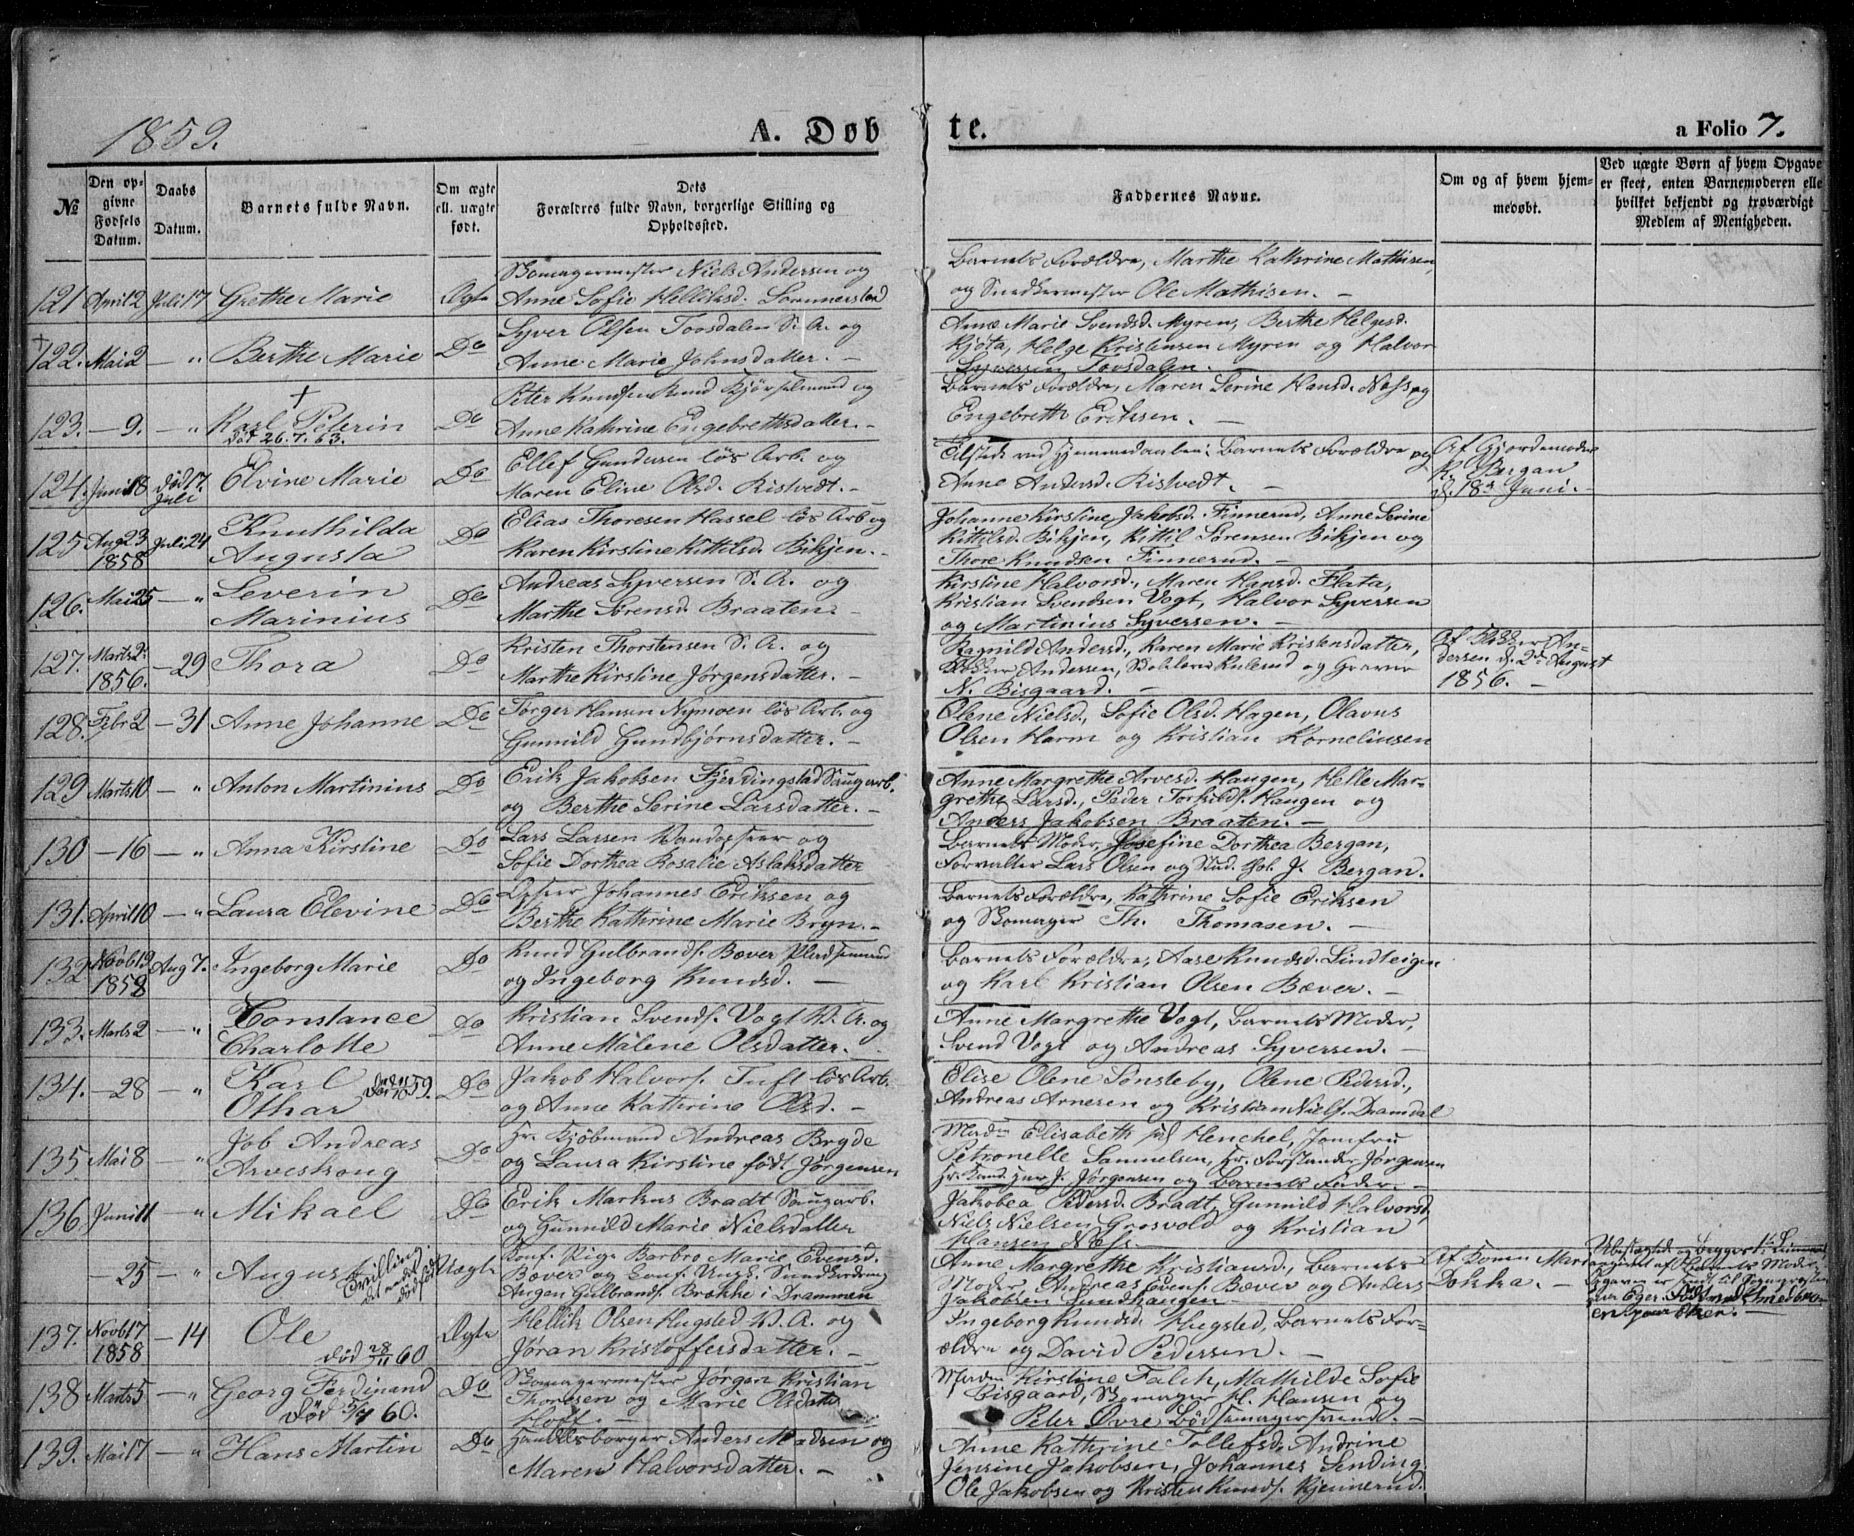 1859.
A. Døb
te.
a Folio 7.
№
Den opgivne Fødsels Datum.
Daabs Datum.
Barnets fulde Navn.
Om ægte ell. uægte født.
Dets Forældres fulde Navn, borgerlige Stilling og Opholdssted.
Faddernes Navne.
Om og af hvem hjemmedøbt.
Ved uægte Børn af hvem Opgave er skeet, enten Barnemoderen elle hvilket bekjendt og troværdigt Medlem af Menigheden.
121 April 2 Juli 17 Grethe Marie Ægte
Skomagermester Niels Andersen og
Anne Sofie Helliksd.
Barnets Forældre, Marthe Kathrine Mathisen,
og Snedkermester Ole Mathisen. –
+
122. Mai 2 – " Berthe Marie Do
Syver Olsen Toosdalen S. A. og
Anne Marie Johnsdatter. –
Anne Marie Svendsd. Myren, Berthe Helgesd.
Kjøta, Helge Kristensen Myren og Halvor
Syversen Toosdalen. –
+
123. – 9. – " Karl Peterin Do
død 26.7.63.
Peter Knudsen
Anne Kathrine Engebrethsdatter. –
Barnets Forældre, Maren Serine Hansd. Næss og
Engebreth Eriksen. –
124. Juni 8 død 17. Juli Elvine Marie Do
Ellef Gundersen løs Arb. og
Maren Eline Olsd. Ristvedt. –
Tilstede ved Hjemmedaaben: Barnets Forældre og
Anne Andersd. Ristvedt. –
Af Gjordemoder
K. Bergan
d. 18de Juni. –
125 Aug 23 1858 Juli 24 Knuthilda
Augusta Do
Elias Thoresen Hassel løs Arb og
Karen Kirstine Kittilsd. Bikjen. –
Johanne Kirstine Jakobsd. Finnerud, Anne Serine
Kittilsd. Bikjen, Kittil Sørensen Bikjen og
Thore Knudsen Finnerud. –
126. Mai 25 – " Severin
Marinius Do
Andreas Syversen S. A. og
Marthe Sørensd. Braaten. –
Kirstine Halvorsd., Maren Hansd. Flata,
Kristian Svendsen Vogt, Halvor Syversen
og Martinius Syversen. –
127. Marts 2 1856. – 29 Thora Do
Kristen Thorstensen S. A. og
Marthe Kirstine Jørgensdatter. –
Ragnild Andersd., Karen Marie Kristensdatter,
Andersen, og Graver
N. Bisgaard. –
Andersen d. 2de August
1856. –
128. Febr 2 – 31 Anne Johanne Do
Torger Hansen Nymoen løs Arb. og
Gunnild Gundbjørnsdatter. –
Olene Nielsd., Sofie Olsd. Hagen, Olavus
Olsen Harm og Kristian Korneliusen
129 Marts 10 – " Anton Martinius Do
Erik Jakobsen Fjerdingstad Saugarb.
og Berthe Serine Larsdatter. –
Anne Margrethe Arvesd. Haugen, Helle Mar-
grethe Larsd., Peder Torkilds. Haugen og
Anders Jakobsen Braaten. –
130 – 16 – " Anna Kirstine Do
Lars Larsen og
Sofie Dorthea Rosalie Aslaksdatter
Barnets Moder, Josefine Dorthea Bergan,
Forvalter Lars Olsen og Stud. J. Bergan.
131. April 10 – " Laura Elevine Do
Johannes Eriksen og
Berthe Kathrine Marie Bryn. –
Barnets Forældre, Kathrine Sofie Eriksen
og Skomager Th. Thomasen. –
132 Novb 19 1858 Aug 7. Ingeborg Marie Do
Knud Gulbrands. Bæver
og Ingeborg Knudsd. –
Barnets Forældre, Aase Knudsd. Lindteigen
og Karl Kristian Olsen Bæver. –
133. Marts 2 – " Constance
Charlotte Do
Kristian Svends. Vogt V. A. og
Anne Malene Olsdatter. –
Anne Margrethe Vogt, Barnets Moder,
Svend Vogt og Andreas Syversen. –
134. – 28 – " Karl
Othar Do
Jakob Halvors. Tuft løs Arb.
og Anne Kathrine Olsd. –
Elise Olene Sønsteby, Olene Pedersd.,
Andreas Arnesen og Kristian Niels. Dramdal
135 Mai 8 – " Job Andreas
Arveskoug Do
Hr. Kjøbmand Andreas Bryde
og Laura Kirstine født Jørgensen
Madm Elisabeth Henchel, Jomfru
Petronelle Samuelsen, Hr. Forstander Jørgensen
J. Jørgensen og Barnets Fader. –
136. Juni 11 – " Mikael Do
Erik Markus Bradt Saugarb.
og Gunnild Marie Nielsdatter
Jakobea Pedersd. Bradt, Gunnild Halvorsd,
Niels Nielsen Grosvold og Kristian
Hansen Næss. –
– 25 – " August Uægte
Tvilling
det andet
dødfødt
Konf. Pige Barbro Marie Evensd.
Bæver og Konf. Ungk. Snedkerdreng
August Gulbrands. Brække i Drammen
Anne Margrethe Kristiansd., Barnets
Moder, Andreas Evens. Bæver og Anders
Jakobsen Sundhaugen
Af Konen Mar
Dokka. –
137. Novb 17 1858 – 14 Ole Ægte
død 28/11 60
Hellik Olsen Hugsted V. A. og
Jøran Kristoffersdatter. –
Ingeborg Knudsd. Hugsted, Barnets For-
ældre og David Pedersen. –
138 Marts 5 – " Georg Ferdinand Do
død 5/4 60.
Skomagermester Jørgen Kristian
Thoresen og Marie Olsdatter
Hoff. –
Madm Kirstine Falch, Mathilde Sofie
Bisgaard, Skomager H. Hansen og
Peter Øvre Bødkermagersvend. –
139. Mai 17 – " Hans Martin Do
Handelsborger Anders Madsen og
Maren Halvorsdatter. –
Anne Kathrine Tollefsd, Andrine
Jensine Jakobsen, Johannes Sending,
Ole Jakobsen og Kristen Knuds. Kjennerud.